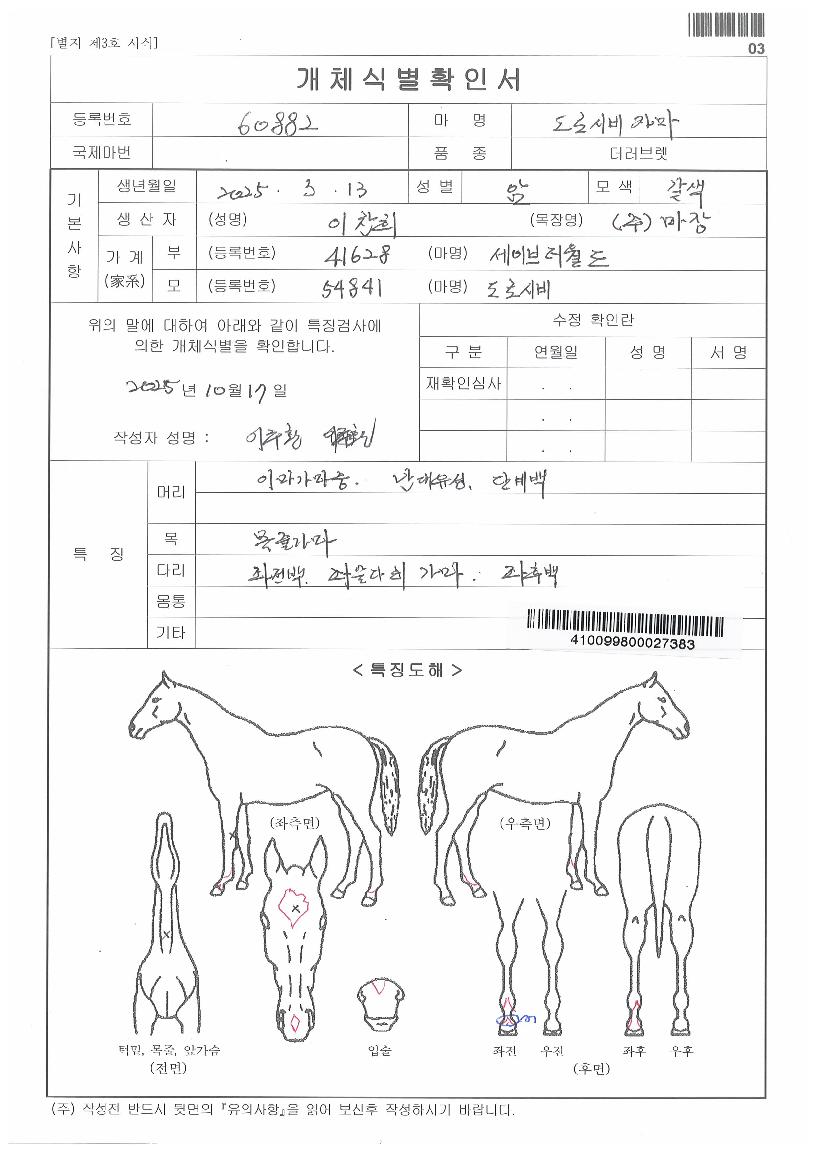 [별지 제3호 서식]
03
개체식별확인서
등록번호 60882 마 명 도로시비자마
국제마번 품 종 더러브렛
기본사항
생년월일 2025 . 3 . 13 성 별 암 모 색 갈색
생 산 자 (성명) 이찬희 (목장명) (주)마장
가 계 (家系) 부 (등록번호) 41628 (마명) 세이브더월드
모 (등록번호) 54841 (마명) 도로시비
위의 말에 대하여 아래와 같이 특징검사에
의한 개체식별을 확인합니다.
2025년 10월 17일
작성자 성명 :
수정 확인란
구 분 연월일 성 명 서 명
재확인심사 . .
. .
. .
특 징
머리 이마가마중. 난대유성, 단비백
목 목줄가마
다리 좌전백, 좌앞다리 가마. 좌후백
몸통
기타
410099800027383
< 특징도해 >
(좌측면)
(우측면)
턱밑, 목줄, 앞가슴
(전면)
입술
좌전 우전 좌후 우후
(후면)
(주) 작성전 반드시 뒷면의 『유의사항』을 읽어 보신후 작성하시기 바랍니다.